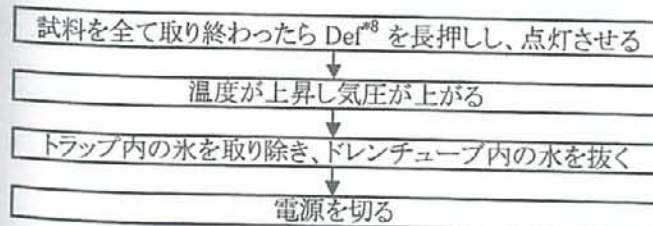 試料を全て取り終わったら Def*8 を長押しし、点灯させる
温度が上昇し気圧が上がる
トラップ内の氷を取り除き、ドレンチューブ内の水を抜く
電源を切る